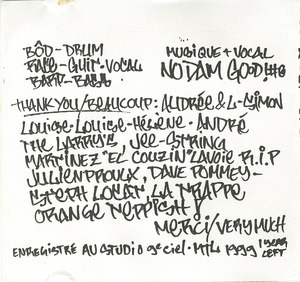 BÔD-DRUM
MUSIQUE + VOCAL
GUIT-VOCAL
NO DAM GOOD!#@
THANK YOU/BEAUCOUP: AUDRÉE & L-SIMON
LOUISE-LOUISE-HÉLÈNE-ANDRÉ
THE LARRY'S, JEE-STRING
MARTINEZ "EL COUZIN" LAVOIE R.I.P
JULIEN PROULX, DAVE POMMEY-
STEPH LOCAT, LA TRAPPE
ORANGE
MERCI/VERY MUCH
ENREGISTRÉ AU STUDIO 9e CIEL-MTL 1999 1 YEAR LEFT